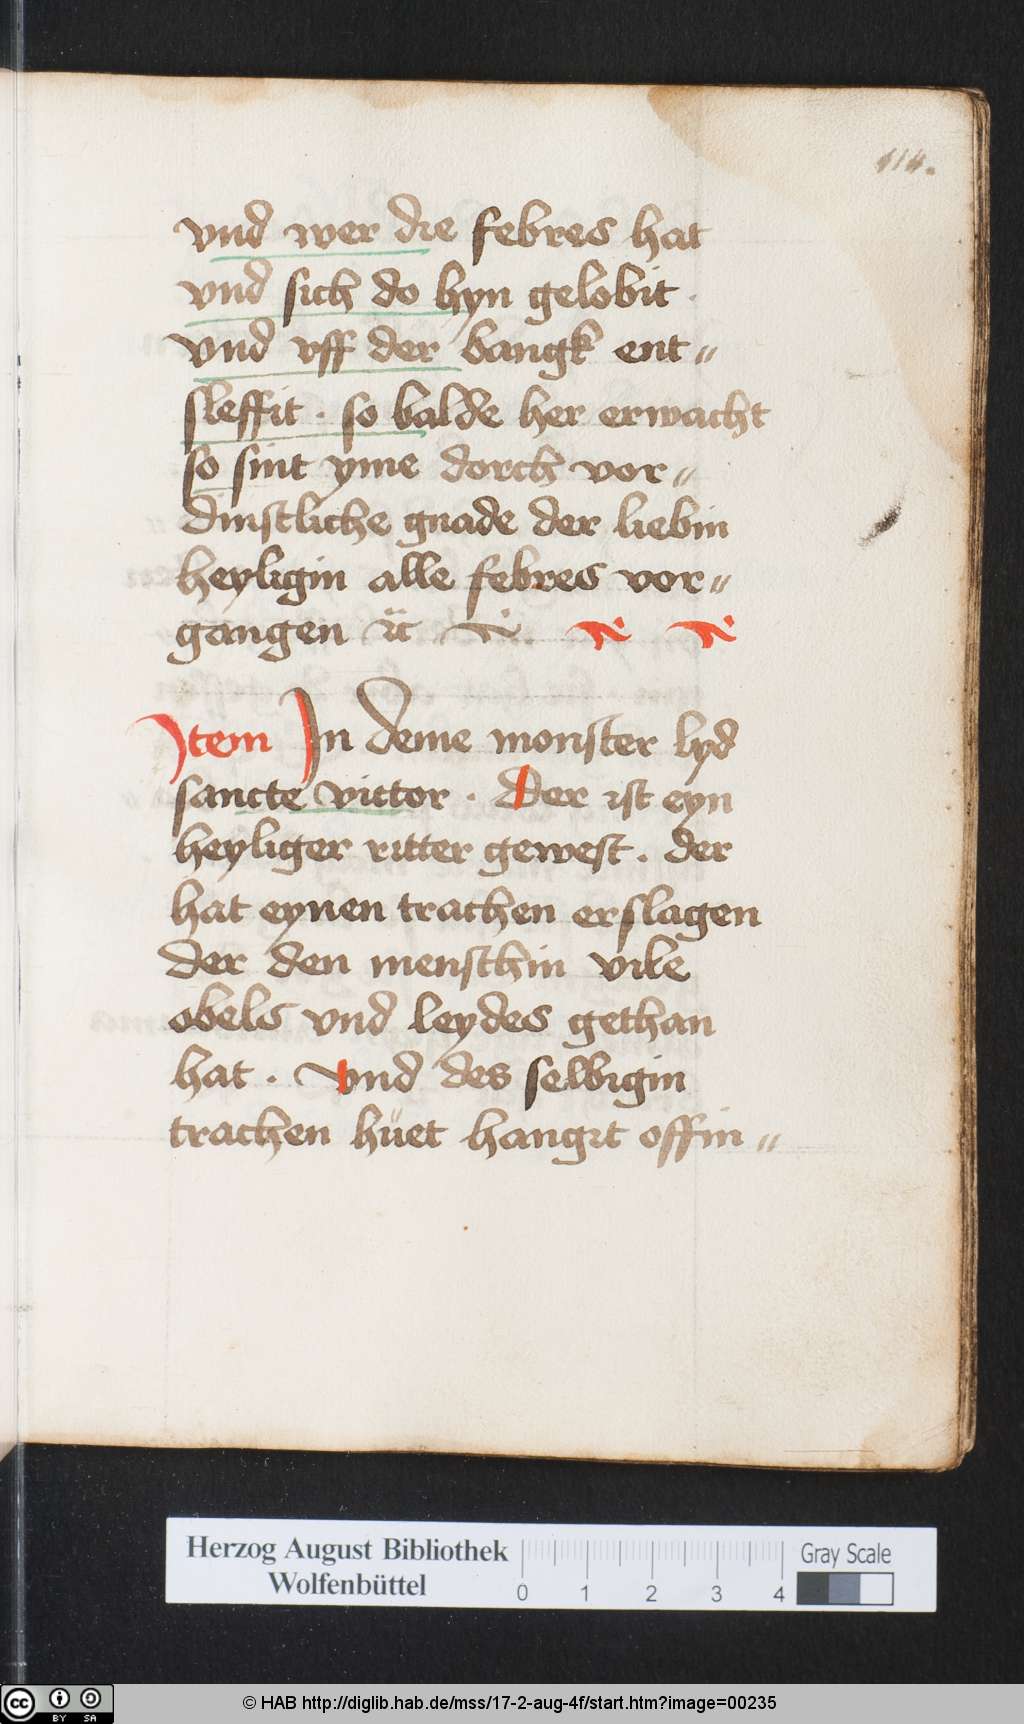 114.
vnd wer die febres hat
vnd sich do hyn gelobit .
vnd vff der bangk ent=
sleffit . so balde her erwacht
so sint yme dorch vor=
dinstliche gnade der liebin
heyligin alle febres vor=
gangen ꝛc̈
Item In deme monster lyd
sancte victor . Der ist eyn
heyliger ritter gewest . der
hat eynen trachen erslagen
der den menschin vile
obels vnd leydes gethan
hat . Vnd des selbigin
trachen hüet hangit offin=
Herzog August Bibliothek
Wolfenbüttel
0 1 2 3 4
Gray Scale
cc BY SA
© HAB http://diglib.hab.de/mss/17-2-aug-4f/start.htm?image=00235